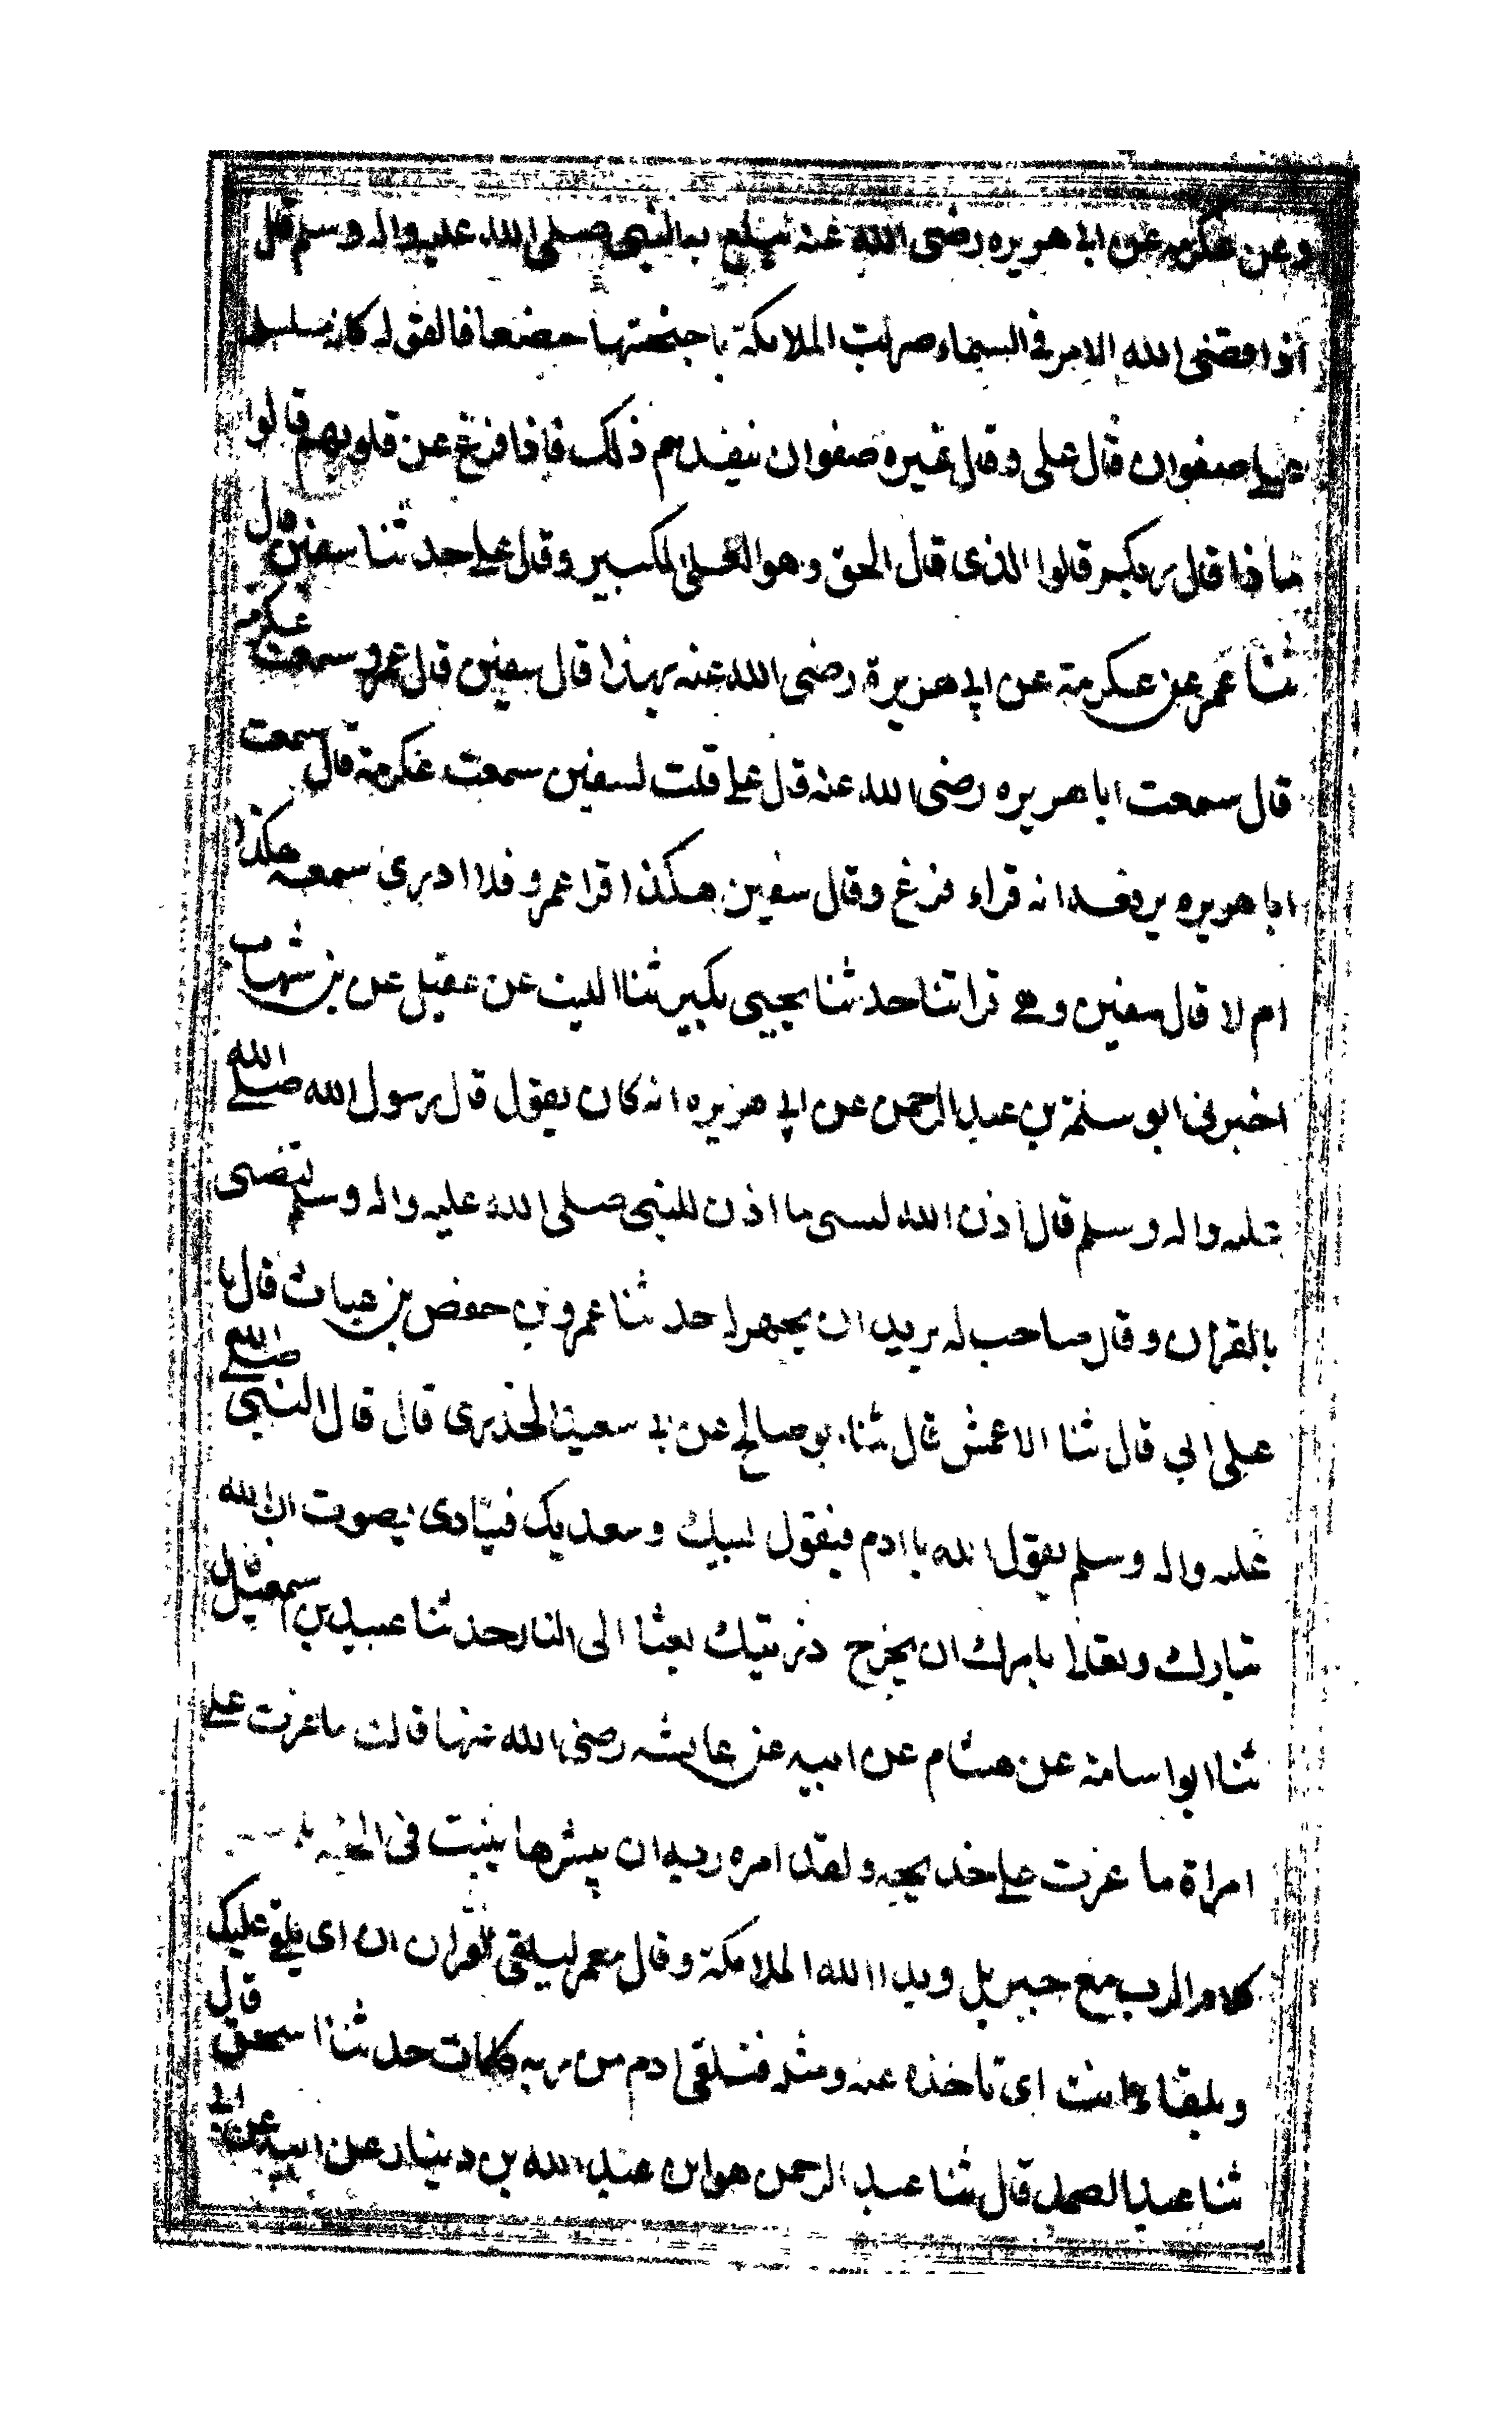 وعن عكرمه عن ابي هريره رضى الله عنه يبلغ به النبى صلى الله عليه واله وسلم قال
اذا قضى الله الامر فى السماء ضربت الملائكة باجنحتها خضعا فا لقوله كانه سلسله
على صفوان قال على وقال غيره صفوان ينفدهم ذلك فاذا فزغ عن قلوبهم قالوا
ماذا قال ربكم قالوا الذى قال الحق وهو العلى الكبير وقال على حدثنا سفين قال
ثنا عمر عن عكرمة عن ابي هريرة رضى الله عنه بهذا قال سفين قال عمرو سمعت عكرمة
قال سمعت اباهريره رضى الله عنه قال على قلت لسفين سمعت عكرمة قال سمعت
اباهريره يرفعه انه قراء فزغ وقال سفين هكذا قرا عمرو فلا ادري سمعه هكذا
ام لا قال سفين وهي قراتنا حدثنا يحيى بكير ثنا الليث عن عقيل عن بن شهاب
اخبرنى ابو سلمة بن عبد الرحمن عن ابي هريره انه كان يقول قال رسول الله صلى الله
عليه واله وسلم قال اذن الله لسى ما اذن للنبى صلى الله عليه واله وسلم يتغنى
بالقران وقال صاحب له يريد ان يجهر له حدثنا عمرو بن حفص بن غياث قال با
على ابي قال ثنا الاعمش قال ثنا بو صالح عن بي سعيد الخذرى قال قال النبي صلى الله
عليه واله وسلم يقول الله يا ادم فيقول لبيك وسعديك فينادى بصوت ان الله
تبارك وتعالا يامرك ان يخرج ذريتك بعثا الى النار حدثنا عبيد بن سمعيل قال
ثنا ابواسامة عن هشام عن ابيه عن عايشه رضى الله عنها قالت ما غرت على
امراة ما غرت على خديجه ولقد امره ربه ان يبشرها ببيت فى الجنه
كلام الرب مع جبريل وندا الله الملائكة وقال معمر ليلقى القران ان اى يلقى عليك
وتلقاه انت اى تاخذه عنه ومثله فتلقى ادم من ربه كلمات حدثنا اسمعق قال
ثنا عبد الصمد قال ثنا عبد الرحمن هو ابن عبد الله بن دينار عن ابيه عن ابي